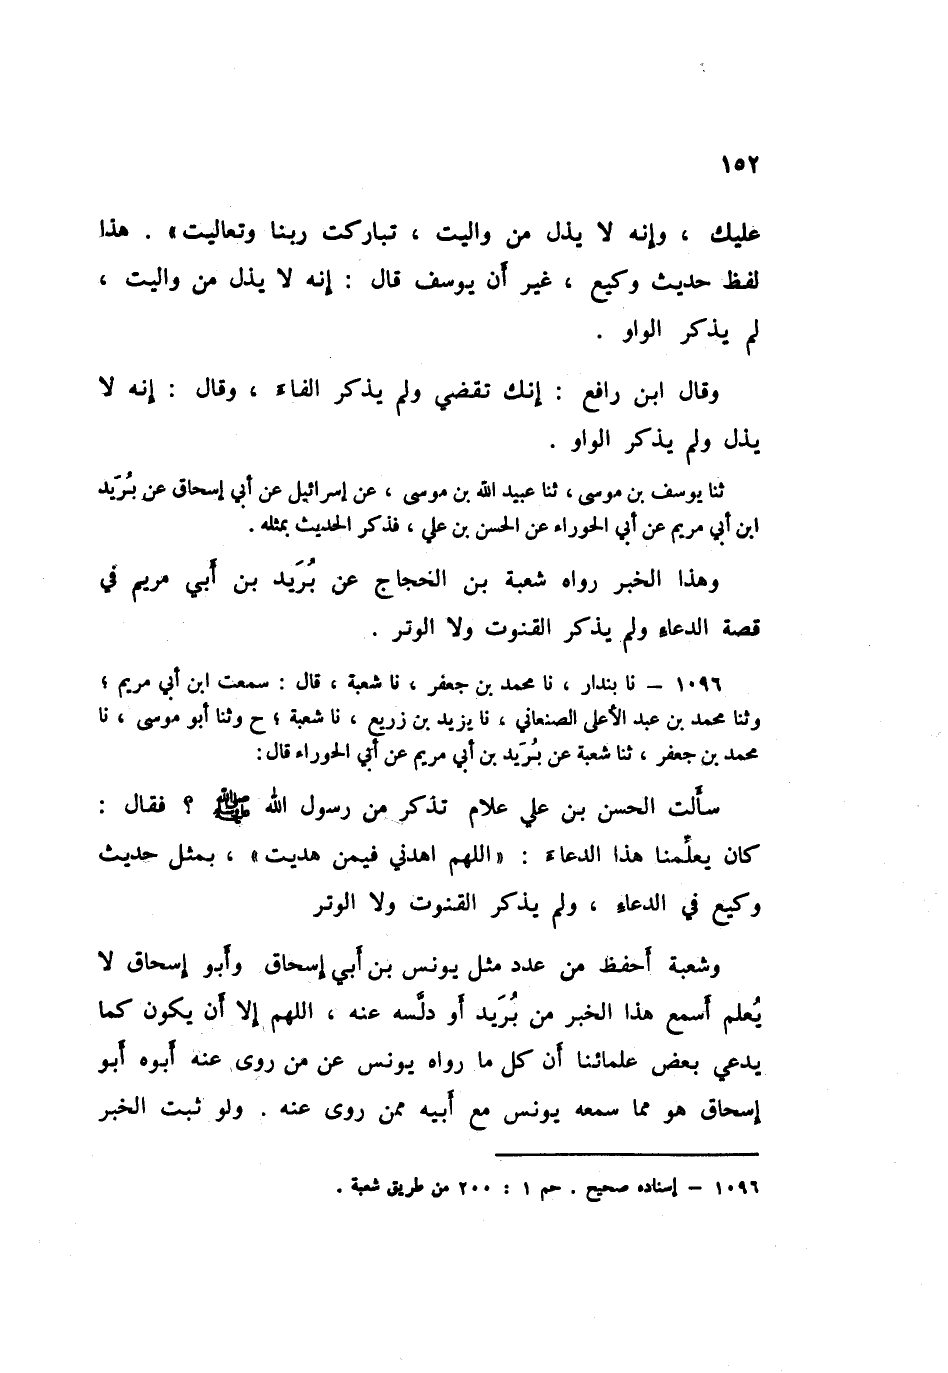 ١٥٢
عليك ، وإنه لا يذل من واليت ، تباركت ربنا وتعاليت» . هذا
لفظ حديث وكيع ، غير أن يوسف قال : إنه لا يذل من واليت ،
لم يذكر الواو .
وقال ابن رافع : إنك تقضي ولم يذكر الفاء ، وقال : إنه لا
يذل ولم يذكر الواو .
ثنا يوسف بن موسى ، ثنا عبيد الله بن موسى ، عن إسرائيل عن أبي إسحاق عن بُرَيد
ابن أبي مريم عن أبي الحوراء عن الحسن بن علي ، فذكر الحديث بمثله .
وهذا الخبر رواه شعبة بن الحجاج عن بُرَيد بن أبي مريم في
قصة الدعاء ولم يذكر القنوت ولا الوتر .
١٠٩٦ – نا بندار ، نا محمد بن جعفر ، نا شعبة ، قال : سمعت ابن أبي مريم ؛
وثنا محمد بن عبد الأعلى الصنعاني ، نا يزيد بن زريع ، نا شعبة ؛ ح وثنا أبو موسى ، نا
محمد بن جعفر ، ثنا شعبة عن بُرَيد بن أبي مريم عن أبي الحوراء قال :
سألت الحسن بن علي علام تذكر من رسول الله ﷺ ؟ فقال :
كان يعلِّمنا هذا الدعاء : «اللهم اهدني فيمن هديت» ، بمثل حديث
وكيع في الدعاء ، ولم يذكر القنوت ولا الوتر
وشعبة أحفظ من عدد مثل يونس بن أبي إسحاق وأبو إسحاق لا
يُعلم أسمع هذا الخبر من بُرَيد أو دلَّسه عنه ، اللهم إلا أن يكون كما
يدعي بعض علمائنا أن كل ما رواه يونس عن من روى عنه أبوه أبو
إسحاق هو مما سمعه يونس مع أبيه ممن روى عنه . ولو ثبت الخبر
١٠٩٦ – إسناده صحيح . حم ١ : ٢٠٠ من طريق شعبة .